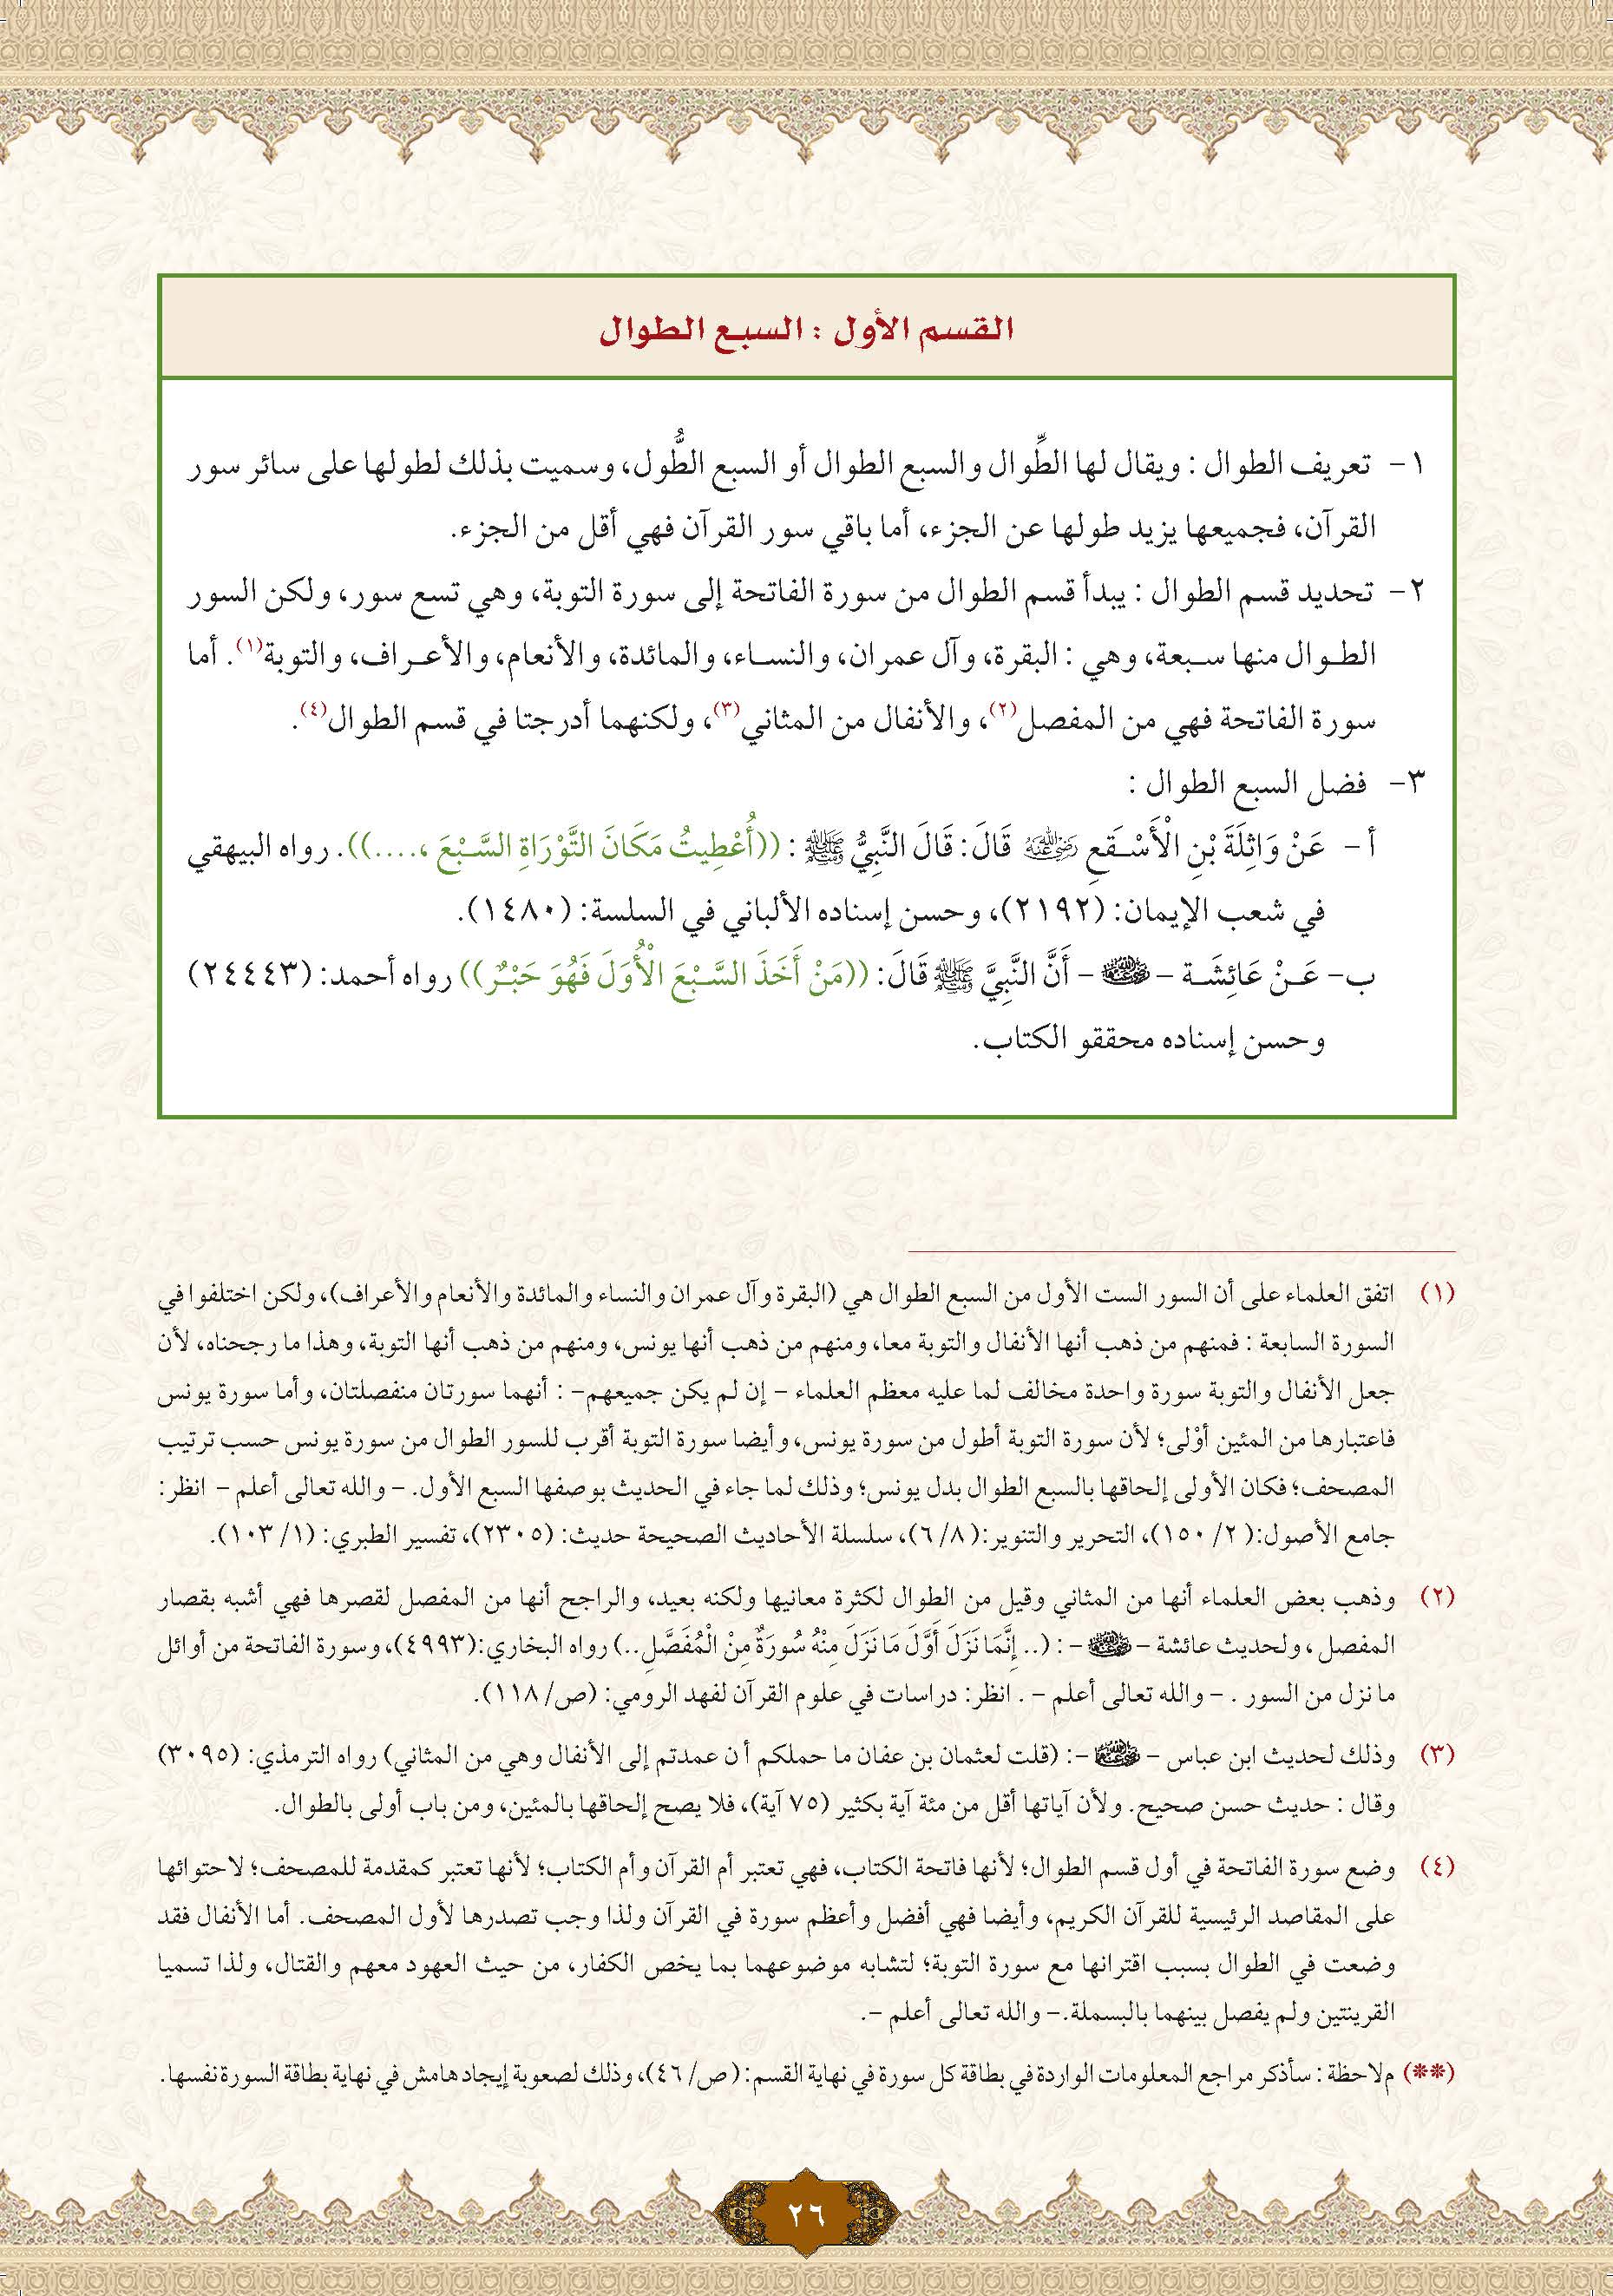 القسم الأول : السبع الطوال
١- تعريف الطوال : ويقال لها الطِّوال والسبع الطوال أو السبع الطُّول، وسميت بذلك لطولها على سائر سور
القرآن، فجميعها يزيد طولها عن الجزء، أما باقي سور القرآن فهي أقل من الجزء.
٢- تحديد قسم الطوال : يبدأ قسم الطوال من سورة الفاتحة إلى سورة التوبة، وهي تسع سور، ولكن السور
الطوال منها سبعة، وهي : البقرة، وآل عمران، والنساء، والمائدة، والأنعام، والأعراف، والتوبة(١). أما
سورة الفاتحة فهي من المفصل(٢)، والأنفال من المثاني(٣)، ولكنهما أدرجتا في قسم الطوال(٤).
٣- فضل السبع الطوال :
أ- عَنْ وَاثِلَةَ بْنِ الْأَسْقَعِ رضي الله عنه قَالَ: قَالَ النَّبِيُّ ﷺ : ((أُعْطِيتُ مَكَانَ التَّوْرَاةِ السَّبْعَ ،....)). رواه البيهقي
في شعب الإيمان: (٢١٩٢)، وحسن إسناده الألباني في السلسة: (١٤٨٠).
ب- عَنْ عَائِشَة - رضي الله عنها - أَنَّ النَّبِيَّ ﷺ قَالَ: ((مَنْ أَخَذَ السَّبْعَ الْأُوَلَ فَهُوَ حَبْرٌ)) رواه أحمد: (٢٤٤٤٣)
وحسن إسناده محققو الكتاب.
(١) اتفق العلماء على أن السور الست الأول من السبع الطوال هي (البقرة وآل عمران والنساء والمائدة والأنعام والأعراف)، ولكن اختلفوا في
السورة السابعة : فمنهم من ذهب أنها الأنفال والتوبة معا، ومنهم من ذهب أنها يونس، ومنهم من ذهب أنها التوبة، وهذا ما رجحناه، لأن
جعل الأنفال والتوبة سورة واحدة مخالف لما عليه معظم العلماء - إن لم يكن جميعهم- : أنهما سورتان منفصلتان، وأما سورة يونس
فاعتبارها من المئين أوْلى؛ لأن سورة التوبة أطول من سورة يونس، وأيضا سورة التوبة أقرب للسور الطوال من سورة يونس حسب ترتيب
المصحف؛ فكان الأولى إلحاقها بالسبع الطوال بدل يونس؛ وذلك لما جاء في الحديث بوصفها السبع الأول. - والله تعالى أعلم - انظر:
جامع الأصول:( ٢/ ١٥٠)، التحرير والتنوير:( ٨/ ٦)، سلسلة الأحاديث الصحيحة حديث: (٢٣٠٥)، تفسير الطبري: (١/ ١٠٣).
(٢) وذهب بعض العلماء أنها من المثاني وقيل من الطوال لكثرة معانيها ولكنه بعيد، والراجح أنها من المفصل لقصرها فهي أشبه بقصار
المفصل ، ولحديث عائشة - رضي الله عنها - : (.. إِنَّمَا نَزَلَ أَوَّلَ مَا نَزَلَ مِنْهُ سُورَةٌ مِنْ الْمُفَصَّلِ..) رواه البخاري:(٤٩٩٣)، وسورة الفاتحة من أوائل
ما نزل من السور . - والله تعالى أعلم - . انظر: دراسات في علوم القرآن لفهد الرومي: (ص/ ١١٨).
(٣) وذلك لحديث ابن عباس - رضي الله عنهما -: (قلت لعثمان بن عفان ما حملكم أن عمدتم إلى الأنفال وهي من المثاني) رواه الترمذي: (٣٠٩٥)
وقال : حديث حسن صحيح. ولأن آياتها أقل من مئة آية بكثير (٧٥ آية)، فلا يصح إلحاقها بالمئين، ومن باب أولى بالطوال.
(٤) وضع سورة الفاتحة في أول قسم الطوال؛ لأنها فاتحة الكتاب، فهي تعتبر أم القرآن وأم الكتاب؛ لأنها تعتبر كمقدمة للمصحف؛ لاحتوائها
على المقاصد الرئيسية للقرآن الكريم، وأيضا فهي أفضل وأعظم سورة في القرآن ولذا وجب تصدرها لأول المصحف. أما الأنفال فقد
وضعت في الطوال بسبب اقترانها مع سورة التوبة؛ لتشابه موضوعهما بما يخص الكفار، من حيث العهود معهم والقتال، ولذا تسميا
القرينتين ولم يفصل بينهما بالبسملة.- والله تعالى أعلم -.
(**) ملاحظة : سأذكر مراجع المعلومات الواردة في بطاقة كل سورة في نهاية القسم: ( ص/ ٤٦)، وذلك لصعوبة إيجاد هامش في نهاية بطاقة السورة نفسها.
٢٦